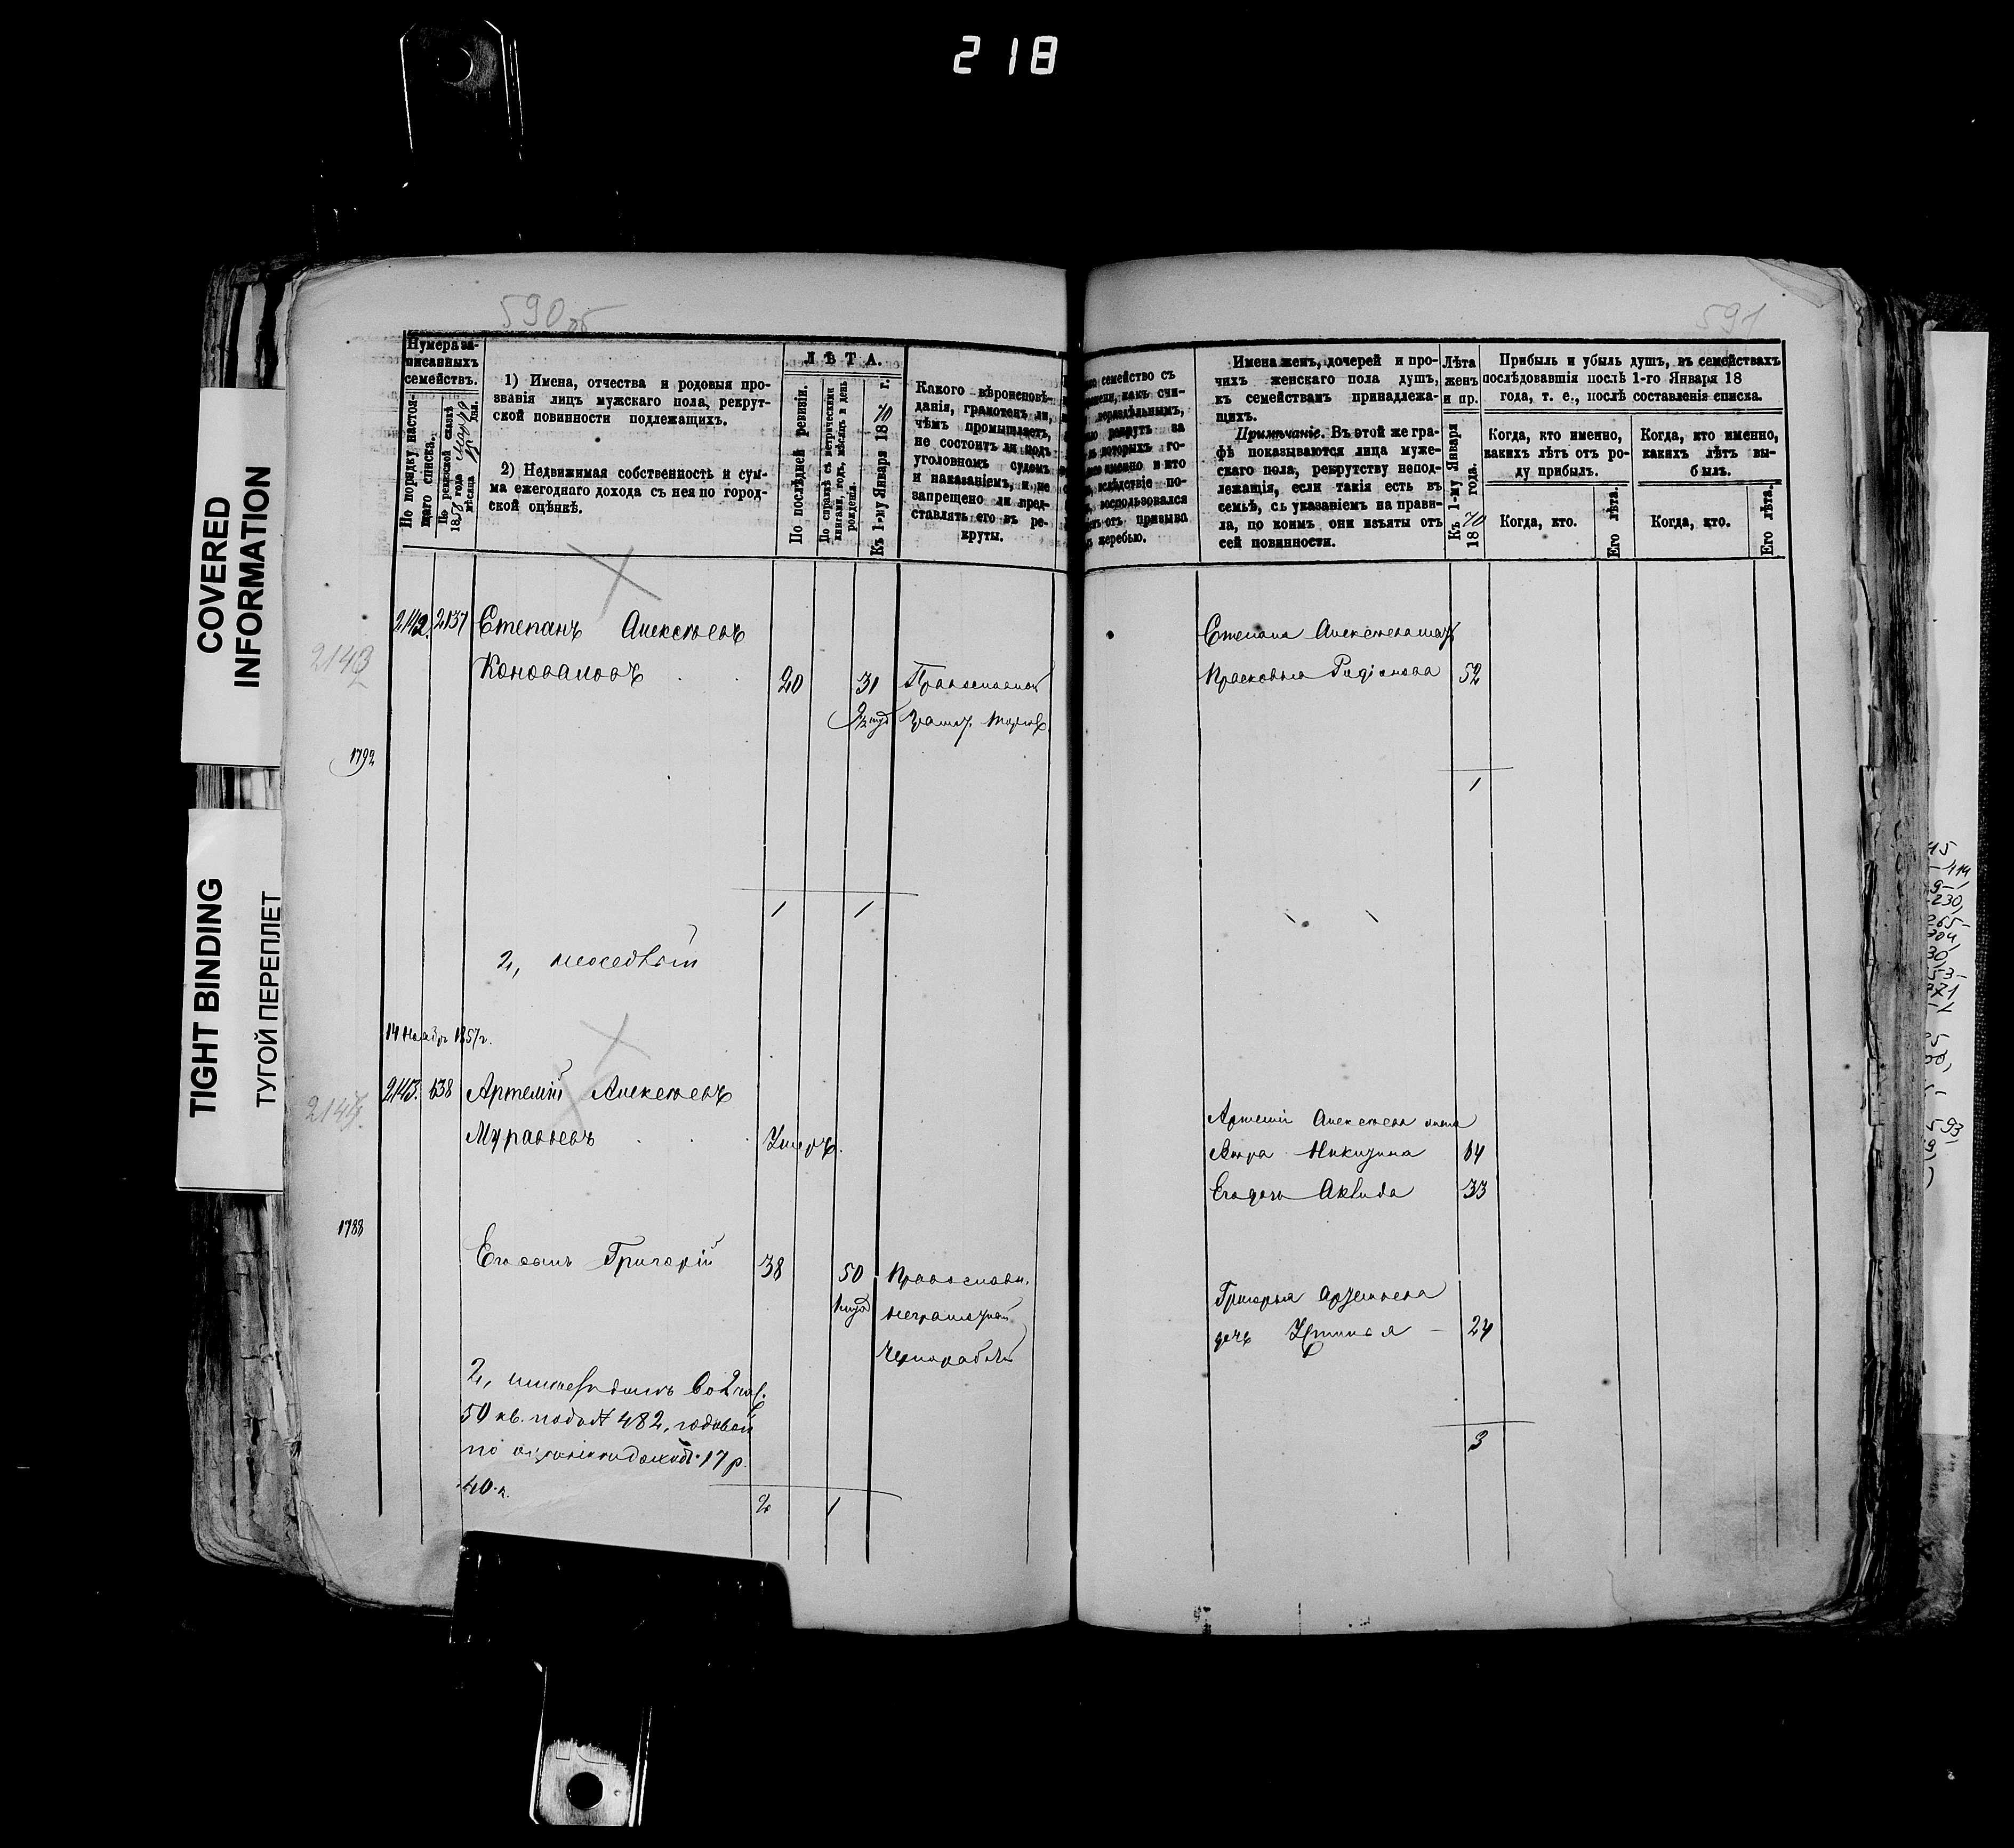 218
COVERED
INFORMATION
TIGHT BINDING
ТУГОЙ ПЕРЕПЛЕТ
590 об
Нумера за-
писанныхъ
семействъ.
По порядку настоя-
щаго списка.
По ревизской сказкѣ
1858 года
мѣсяца дня.
1) Имена, отчества и родовыя про-
званія лицъ мужскаго пола, рекрут-
ской повинности подлежащихъ.
2) Недвижимая собственность и сум-
ма ежегоднаго дохода съ нея по город-
ской оцѣнкѣ.
ЛѢТА.
По послѣдней ревизіи.
По справкѣ съ метрическими
книгами, годъ, мѣсяцъ и день
рожденія.
Къ 1-му Января 1870 г.
Какого вѣроисповѣ-
данія, грамотенъ ли,
чѣмъ промышляетъ,
не состоитъ ли подъ
уголовномъ судомъ
и наказаніемъ, и не
запрещено ли пред-
ставлять его въ ре-
круты.
2142. 2137 Степанъ Алексѣевъ
2143
Коноваловъ 20 31 Православной
1792
1 1
14 1857г.
2143. 138 Артемій Алексѣевъ
2144.
Муравьевъ Умеръ.
1788
Его сынъ Григорій 38 50 Православн.
неграмотной
чернорабочій
2,
59 кв. подъ № 482, годовой
по 17 р.
40 к.
2 1
591
семейство съ
какъ счи-
нераздѣльнымъ,
рекрутъ за
которыхъ го-
именно и кто
вслѣдствіе по-
воспользовался
отъ призыва
жеребью.
Имена женъ, дочерей и про-
чихъ женскаго пола душъ,
къ семействамъ принадлежа-
щихъ.
Примѣчаніе. Въ этой же гра-
фѣ показываются лица муже-
скаго пола, рекрутству непод-
лежащія, если такія есть въ
семьѣ, съ указаніемъ на прави-
ла, по коимъ они изъяты отъ
сей повинности.
Лѣта
женъ
и пр.
Къ 1-му Января
1870 года.
Прибыль и убыль душъ, въ семействахъ
послѣдовавшія послѣ 1-го Января 18
года, т. е., послѣ составленія списка.
Когда, кто именно,
какихъ лѣтъ отъ ро-
ду прибылъ.
Когда, кто именно,
какихъ лѣтъ вы-
былъ.
Когда, кто.
Его лѣта.
Когда, кто.
Его лѣта.
Степана Алексѣева мать
Прасковья Родіонова 52
1
Артемія Алексѣева жена
Никитина 64
Его дочь 33
Григорья Артемьева
дочь Устинья 24
3